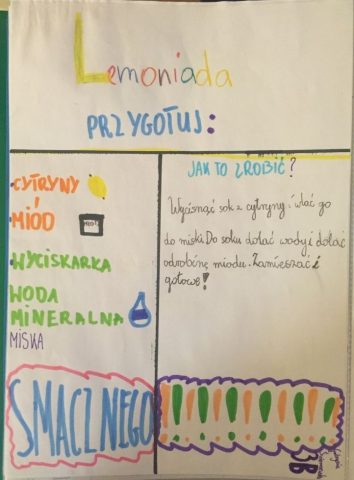 Lemoniada
PRZYGOTUJ:
• CYTRYNY
• MIÓD
MIÓD
• WYCISKARKA
WODA
MINERALNA
MISKA
SMACZNEGO
JAK TO ZROBIĆ?
Wycisnąć sok z cytryny i wlać go
do miski. Do soku dolać wody i dolać
odrobinę miodu. Zamieszać i
gotowe!
!!!!!!!!!!!!
3B